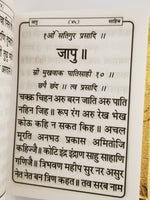 जापु ( ४५ ) साहिब
१ओं सतिगुर प्रसादि ॥
जापु ॥
श्री मुखवाक पातिसाही १० ॥
छपै छंद ॥ त्व प्रसादि ॥
चक्क्र चिहन अरु बरन जाति अरु पाति
नहिन जिह ॥ रूप रंग अरु रेख भेख
कोऊ कहि न सकत किह ॥ अचल
मूरति अनभउ प्रकास अमितोजि
कहिजै ॥ कोटि इंद्र इंद्राण साहु साहाणि
गणिजै ॥ त्रिभवण महीप सुर नर असुर
नेत नेत बन त्रिण कहत ॥ तव सरब नाम